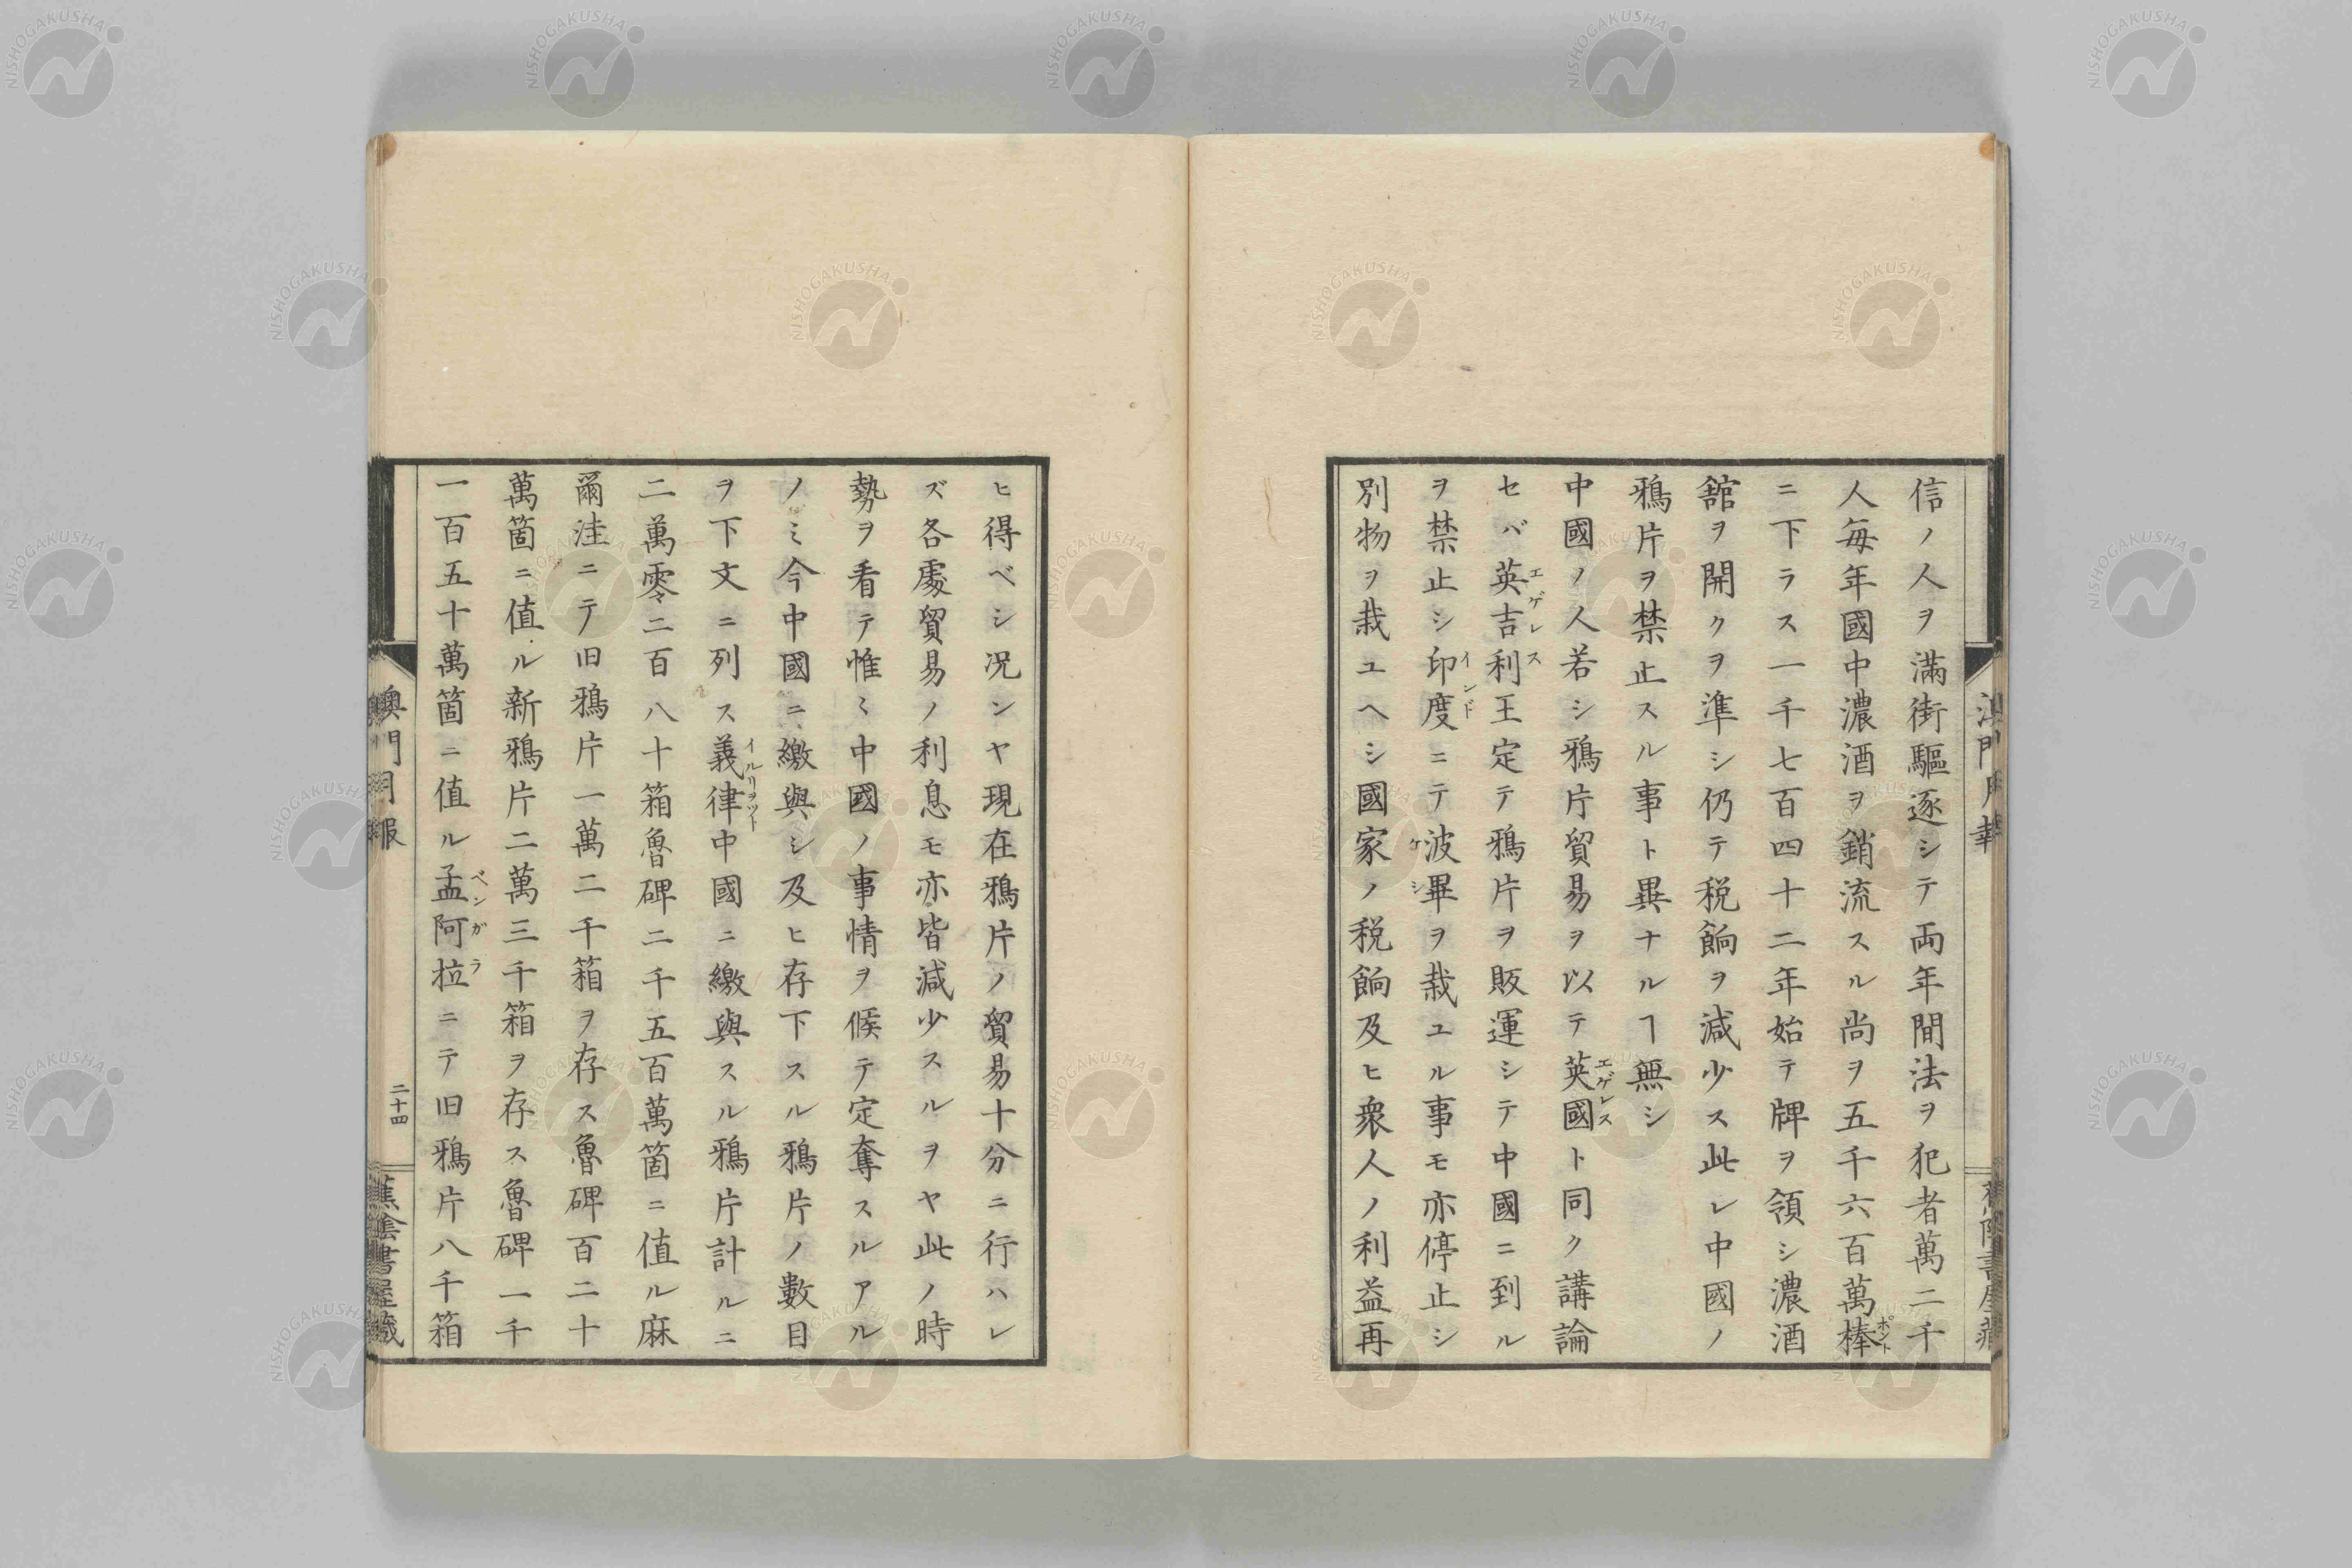 信ノ人ヲ滿街驅逐シテ両年間法ヲ犯者萬二千
人毎年國中濃酒ヲ銷流スル尚ヲ五千六百萬棒
ポント
ニ下ラス一千七百四十二年始テ牌ヲ領シ濃酒
舘ヲ開クヲ準シ仍テ税餉ヲ減少ス此レ中國ノ
鴉片ヲ禁止スル事ト異ナルヿ無シ
中國ノ人若シ鴉片貿易ヲ以テ英國ト同ク講論
エゲレス
セバ英吉利王定テ鴉片ヲ販運シテ中國ニ到ル
エゲレス
ヲ禁止シ印度ニテ波畢ヲ栽ユル事モ亦停止シ
インド
ケシ
別物ヲ栽ユヘシ國家ノ税餉及ヒ衆人ノ利益再
ヒ得ベシ况ンヤ現在鴉片ノ貿易十分ニ行ハレ
ズ各處貿易ノ利息モ亦皆減少スルヲヤ此ノ時
勢ヲ看テ惟ミ中國ノ事情ヲ候テ定奪スルアル
ノミ今中國ニ繳與シ及ヒ存下スル鴉片ノ數目
ヲ下文ニ列ス義律中國ニ繳與スル鴉片計ルニ
イルリヲツト
二萬零二百八十箱魯碑二千五百萬箇ニ值ル麻
爾洼ニテ旧鴉片一萬二千箱ヲ存ス魯碑百二十
萬箇ニ值ル新鴉片二萬三千箱ヲ存ス魯碑一千
一百五十萬箇ニ值ル孟阿拉ニテ旧鴉片八千箱
ベンガラ
澳門月報
二十四
蕉陰書屋藏
NISHOGAKUSHA